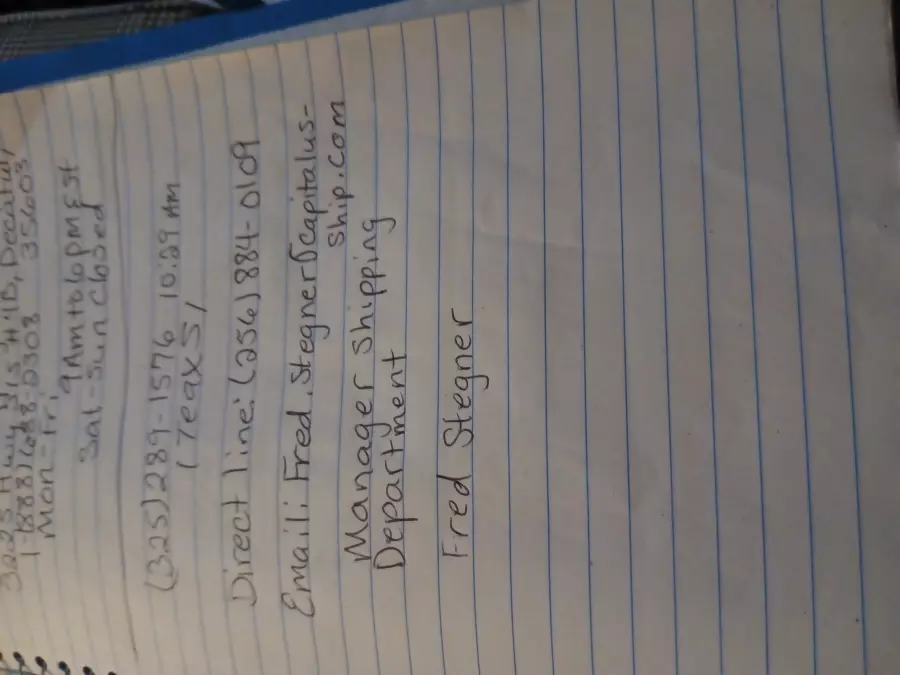 3225 Hwy 31 S # 1D, Decatur,
1-(888) 688-0308 35603
Mon-Fri,
9Am to 6pm Est
Sat-Sun Closed
(325) 289-1576 10:29 Am
(Teaxs,
Direct line: (256) 884-0109
Email: Fred.Stegner@capitalus-
ship.com
Manager Shipping
Department
Fred Stegner